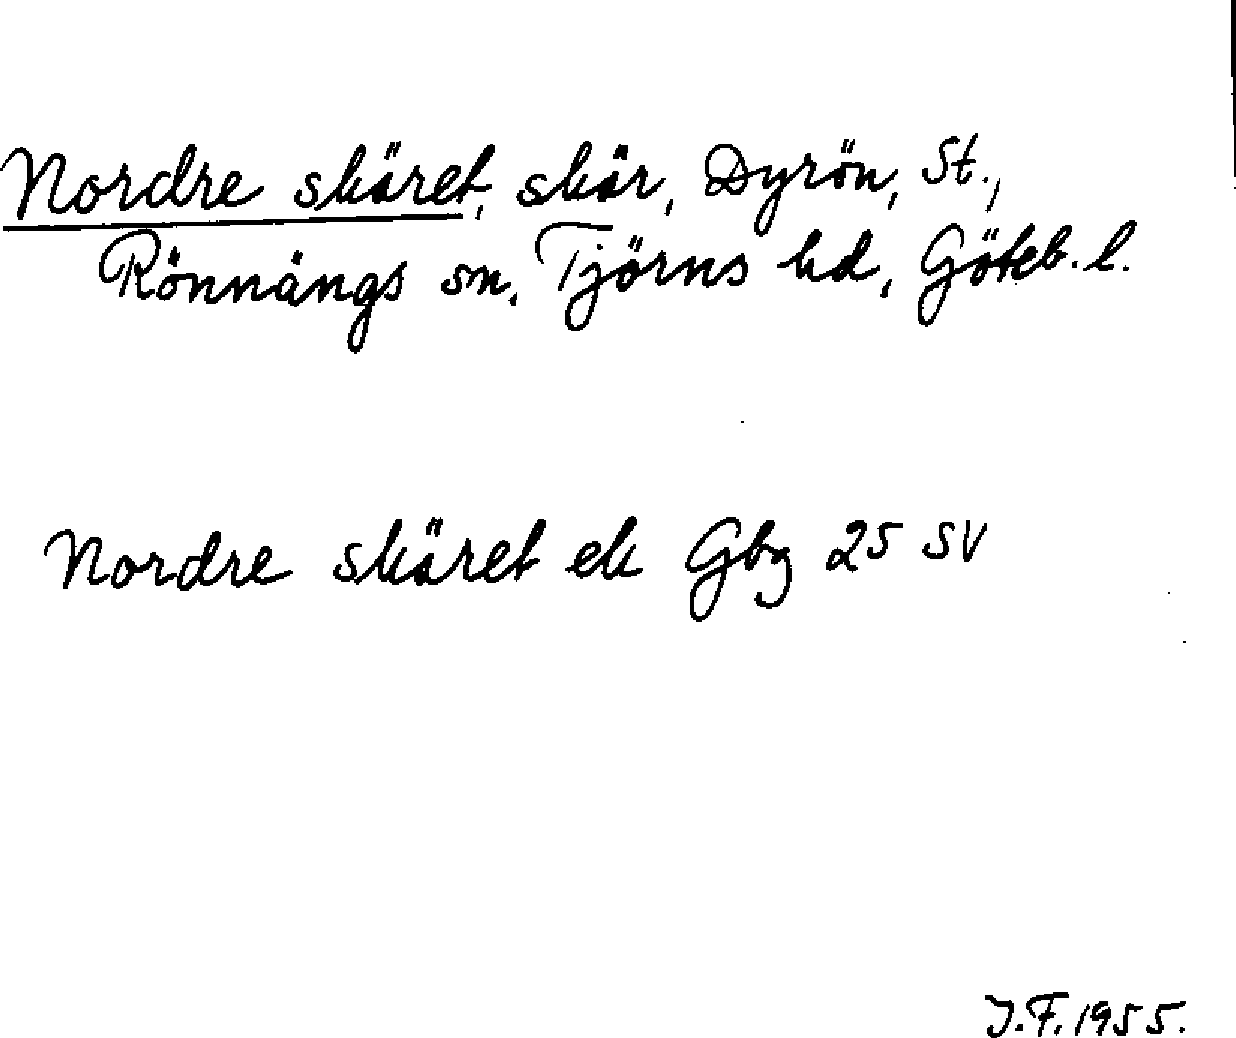 Nordre skäret, skär, Dyrön, St.,
Rönnängs sn, Tjörns hd, Göteb. l.
Nordre skäret ek Gbg 25 SV
J.F. 1955.